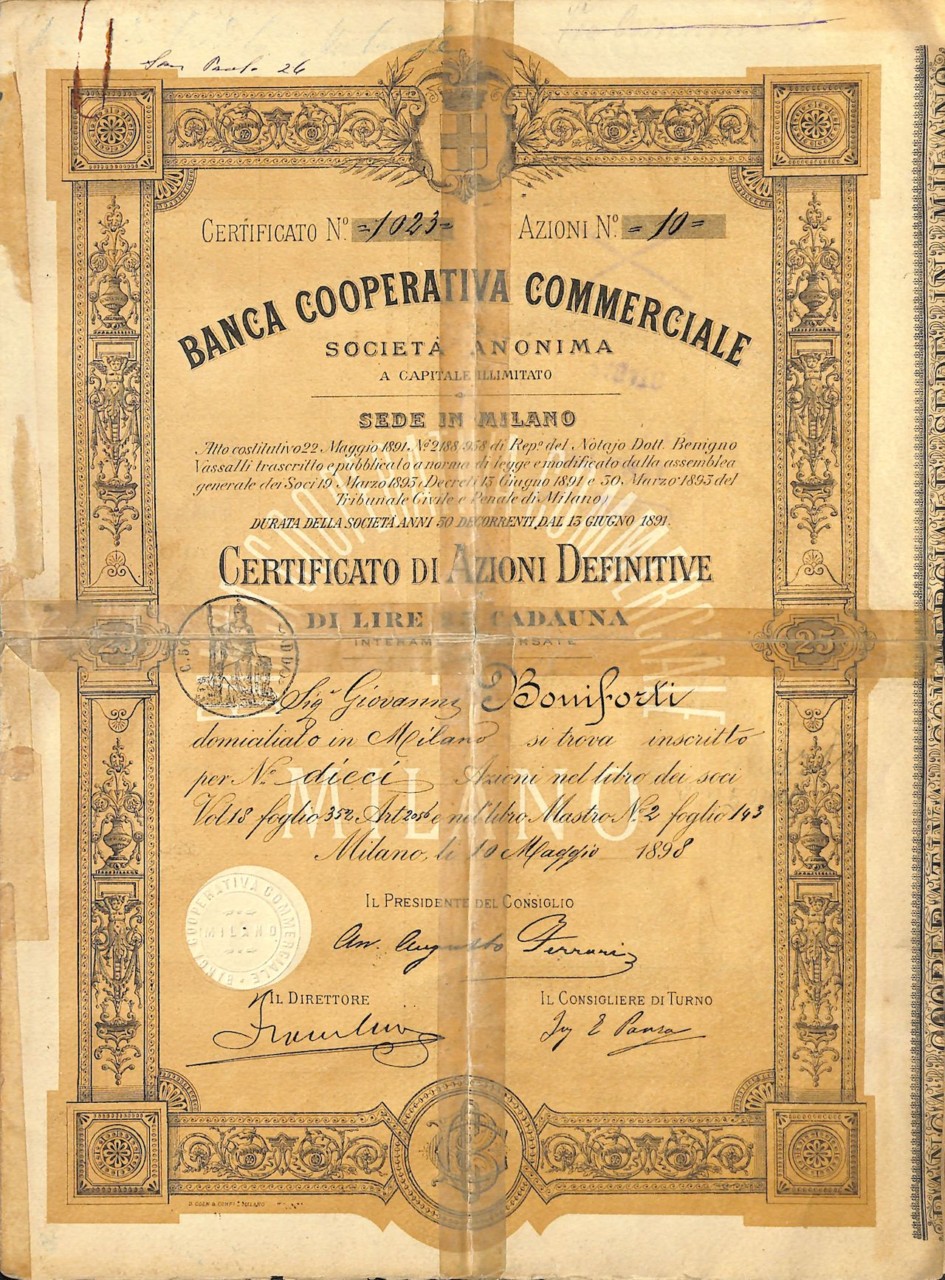 San Paolo 26
CERTIFICATO Nº. =1023=
AZIONI Nº =10=
BANCA COOPERATIVA COMMERCIALE
SOCIETÀ ANONIMA
A CAPITALE ILLIMITATO
SEDE IN MILANO
Atto costitutivo 22 Maggio 1891. Nº 2188/958 di Repº del Notajo Dott. Benigno
Vassalli trascritto e pubblicato a norma di legge e modificato dalla assemblea
generale dei Soci 19 Marzo 1893 (Decreti 13 Giugno 1891 e 30 Marzo 1893 del
Tribunale Civile e Penale di Milano)
DURATA DELLA SOCIETÀ ANNI 30 DECORRENTI DAL 13 GIUGNO 1891.
CERTIFICATO DI AZIONI DEFINITIVE
DI LIRE 25 CADAUNA
INTERAMENTE VERSATE
25
25
Sigr Giovanni Boniforti
domiciliato in Milano si trova inscritto
per Nº dieci Azioni nel libro dei soci
Vol 18 foglio 352 Art e nel libro Mastro Nº 2 foglio 143
Milano, li 10 Maggio 1898
MILANO
IL PRESIDENTE DEL CONSIGLIO
Augusto Ferrari
BANCA COOPERATIVA COMMERCIALE
MILANO
IL DIRETTORE
IL CONSIGLIERE DI TURNO
Ing E Panza